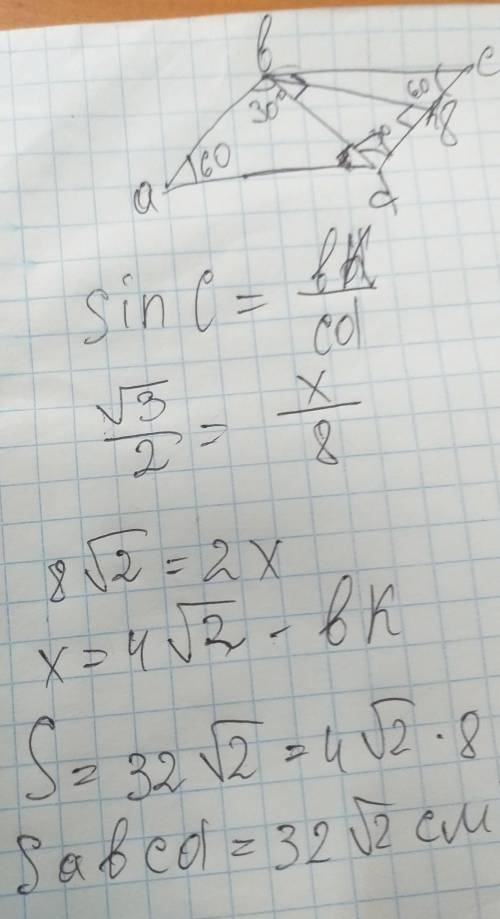 в c
30° 60 8
60
a d
sin C = вК/cd
√3/2 = x/8
8√2 = 2x
x = 4√2 - вК
S = 32√2 = 4√2 · 8
Sавcd = 32√2 см